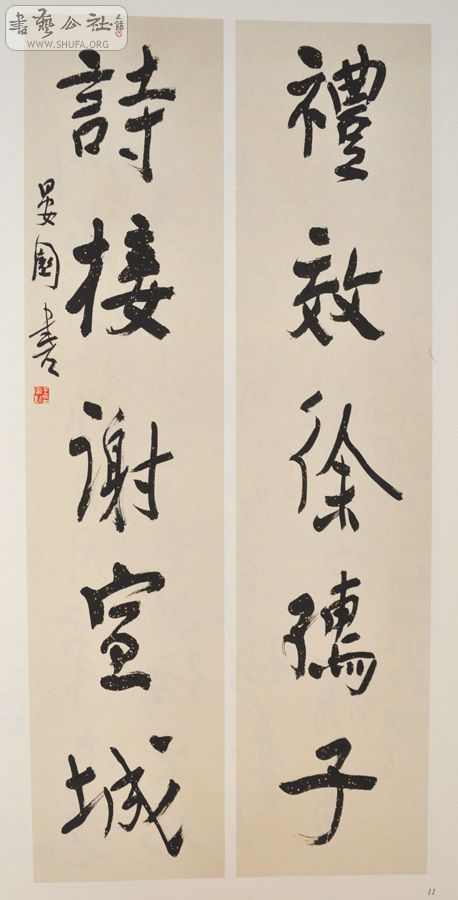 書藝公社
WWW.SHUFA.ORG
禮效徐孺子
詩接謝宣城
晏園書
11